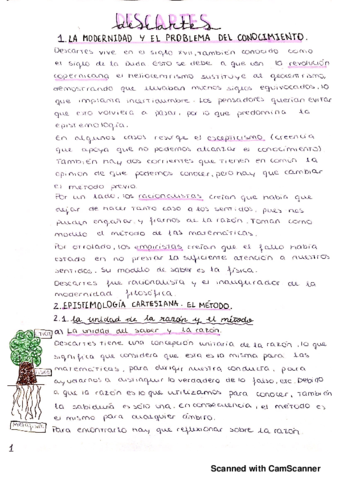 DESCARTES
Descartes
1. LA MODERNIDAD Y EL PROBLEMA DEL CONOCIMIENTO.
Descartes vive en el siglo XVII, también conocido como
el siglo de la duda. Esto se debe a que con la revolución
copernicana el heliocentrismo sustituye al geocentrismo,
demostrando que llevaban muchos siglos equivocados, lo
que implanta incertidumbre. Los pensadores querían evitar
que esto volviera a pasar, por lo que predomina la
epistemología.
En algunos casos resurge el escepticismo (creencia
que apoya que no podemos alcanzar el conocimiento)
También hay dos corrientes que tienen en común la
opinión de que podemos conocer, pero hay que cambiar
el método previo.
Por un lado, los racionalistas creían que había que
dejar de hacer tanto caso a los sentidos, pues nos
pueden engañar, y fiarnos de la razón. Toman como
modelo el método de las matemáticas.
Por otro lado, los empiristas creían que el fallo había
estado en no prestar la suficiente atención a nuestros
sentidos. Su modelo de saber es la física.
Descartes fue racionalista y el inaugurador de la
modernidad filosófica.
2. EPISTEMOLOGÍA CARTESIANA. EL MÉTODO.
2.1. La unidad de la razón y el método
a) La unidad del saber y la razón
Descartes tiene una concepción unitaria de la razón, lo que
significa que considera que esta es la misma para las
matemáticas, para dirigir nuestra conducta, para
ayudarnos a distinguir lo verdadero de lo falso, etc. Debido
a que la razón es lo que utilizamos para conocer, también
la sabiduría es sólo una. En consecuencia, el método es
el mismo para cualquier ámbito.
Para encontrarlo hay que reflexionar sobre la razón.
1
Scanned with CamScanner